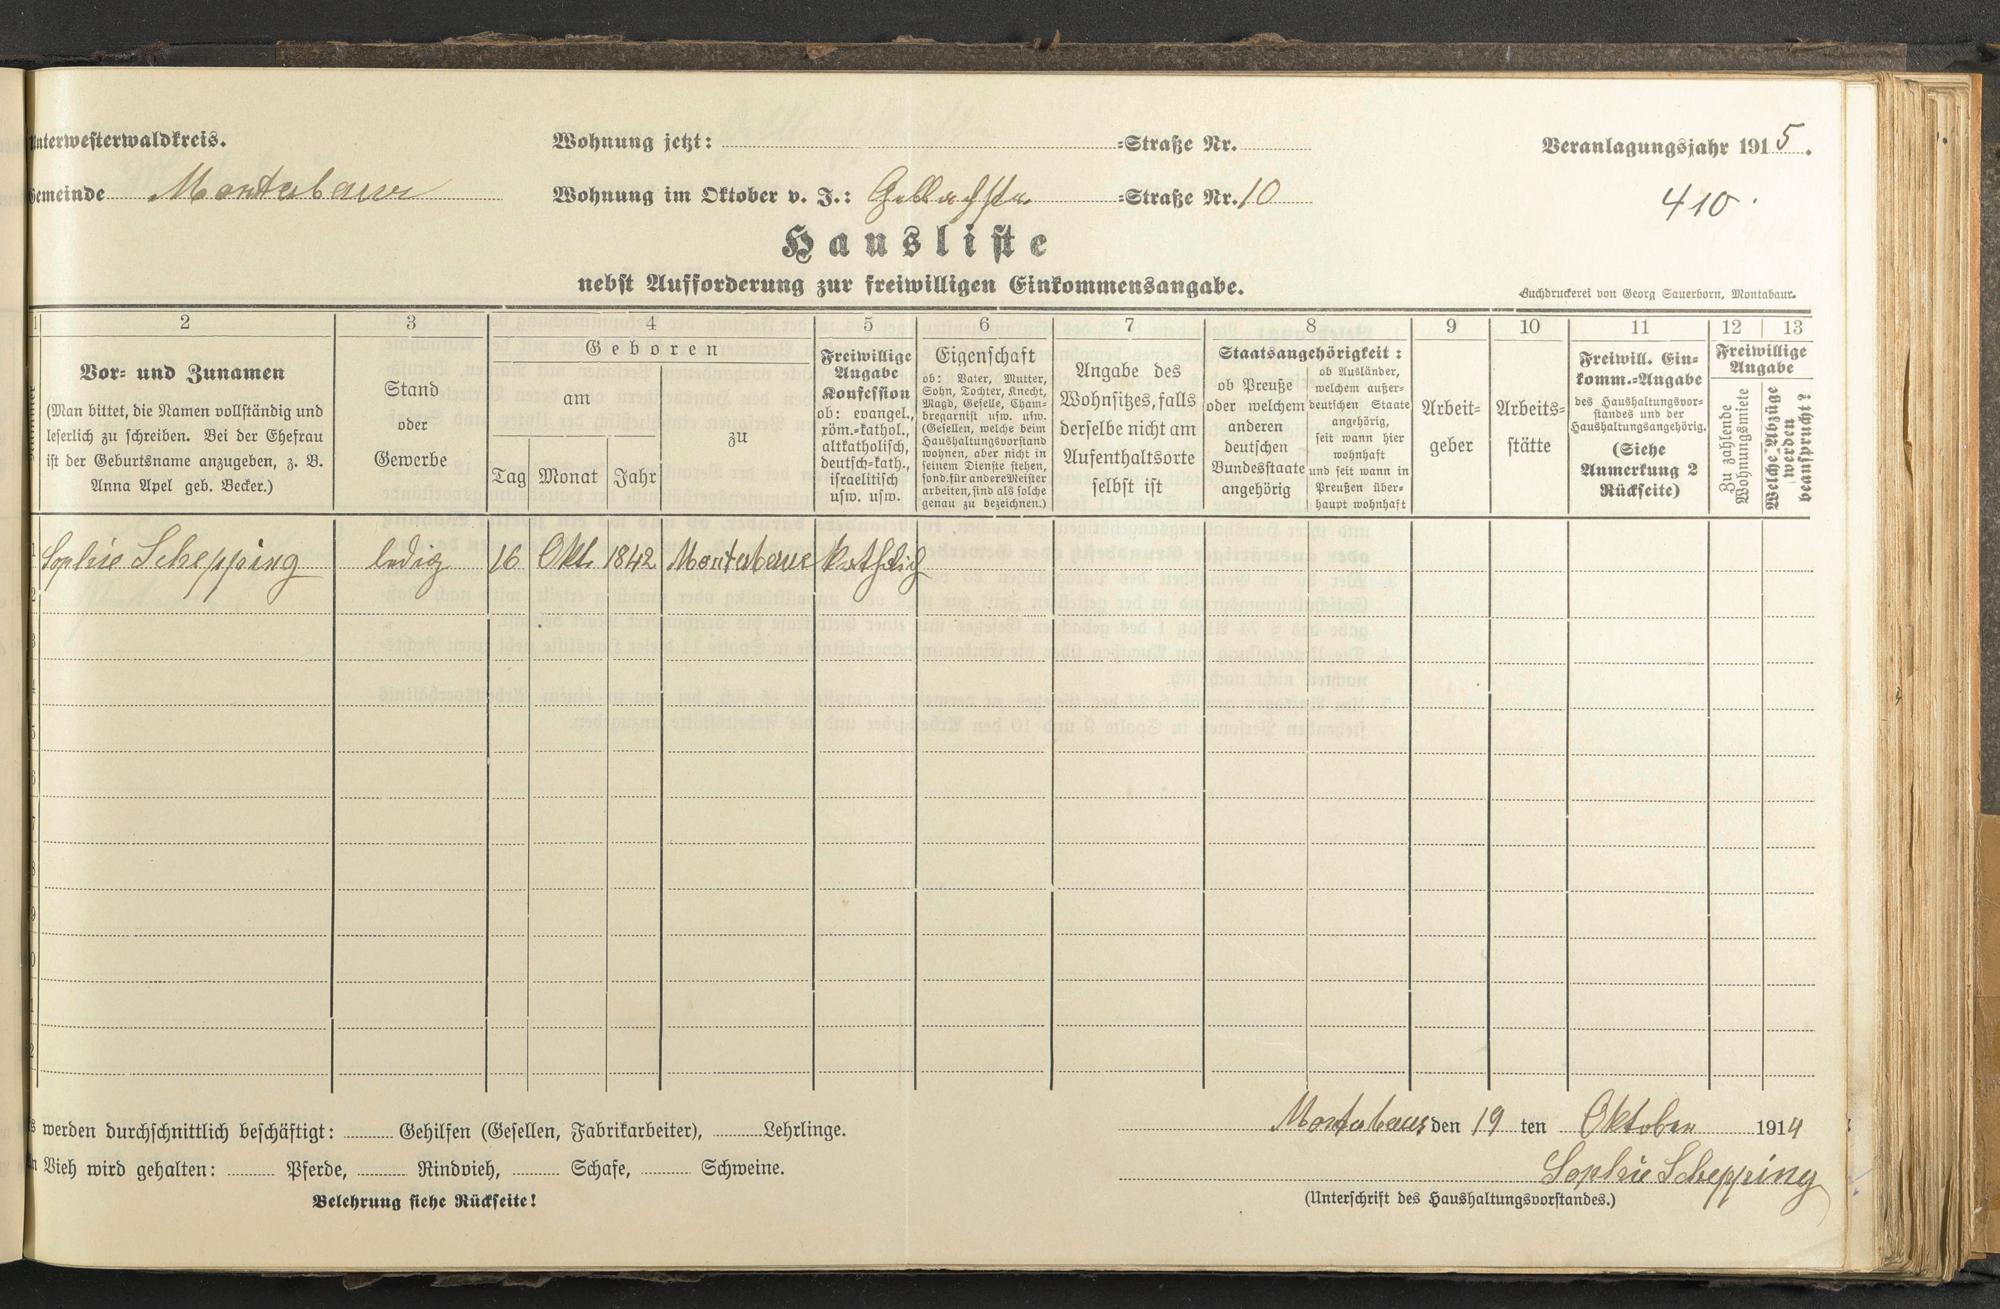 Unterwesterwaldkreis.
Wohnung jetzt: -Straße Nr.
Veranlagungsjahr 1915.
Gemeinde Montabaur
Wohnung im Oktober v. J.: -Straße Nr. 10
410.
Hausliste
nebst Aufforderung zur freiwilligen Einkommensangabe.
Buchdruckerei von Georg Sauerborn, Montabaur.
1 2 3 4 5 6 7 8 9 10 11 12 13
Nummer
Vor- und Zunamen
(Man bittet, die Namen vollständig und
leserlich zu schreiben. Bei der Ehefrau
ist der Geburtsname anzugeben, z. B.
Anna Apel geb. Becker.)
Stand
oder
Gewerbe
Geboren
am
Tag Monat Jahr
zu
Freiwillige
Angabe
Konfession
ob: evangel.,
röm.-kathol.,
altkatholisch,
deutsch-kath.,
israelitisch
usw. usw.
Eigenschaft
ob: Vater, Mutter,
Sohn, Tochter, Knecht,
Magd, Geselle, Cham-
bregarnist usw. usw.
(Gesellen, welche beim
Haushaltungsvorstand
wohnen, aber nicht in
seinem Dienste stehen,
sond. für andere Meister
arbeiten, sind als solche
genau zu bezeichnen.)
Angabe des
Wohnsitzes, falls
derselbe nicht am
Aufenthaltsorte
selbst ist
Staatsangehörigkeit:
ob Preuße
oder welchem
anderen
deutschen
Bundesstaate
angehörig
ob Ausländer,
welchem außer-
deutschen Staate
angehörig,
seit wann hier
wohnhaft
und seit wann in
Preußen über-
haupt wohnhaft
Arbeit-
geber
Arbeits-
stätte
Freiwill. Ein-
komm.-Angabe
des Haushaltungsvor-
standes und der
Haushaltungsangehörig.
(Siehe
Anmerkung 2
Rückseite)
Freiwillige
Angabe
Zu zahlende
Wohnungsmiete
Welche Abzüge
werden
beansprucht?
1 Sophie Schepping ledig 16 Okt. 1842 Montabaur kathol.
2
3
4
5
6
7
8
9
0
1
2
s werden durchschnittlich beschäftigt: Gehilfen (Gesellen, Fabrikarbeiter), Lehrlinge.
Montabaur den 19 ten Oktober 1914
n Vieh wird gehalten: Pferde, Rindvieh, Schafe, Schweine.
Sophie Schepping
Belehrung siehe Rückseite!
(Unterschrift des Haushaltungsvorstandes.)